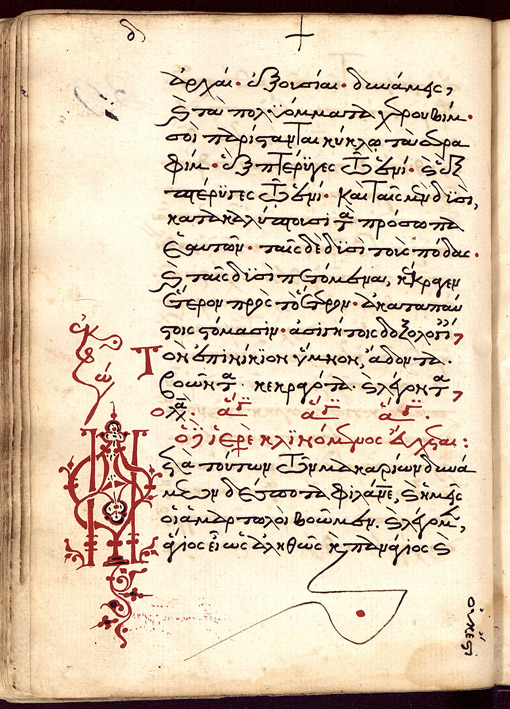 δ
ἀρχαί· ἐξουσίαι· δυνάμεις,
καὶ τὰ πολυόμματα χερουβίμ·
σοὶ παρίστανται κύκλῳ τὰ σερα
φίμ· ἓξ πτέρυγες τῷ ἑνί· καὶ ἓξ
πτέρυγες τῷ ἑνί· καὶ ταῖς μὲν δυσὶ,
κατακαλύπτουσι τὰ πρόσωπα
ἑαυτῶν· ταῖς δὲ δυσὶ τοὺς πόδας·
καὶ ταῖς δυσὶ πετόμενα, κέκραγεν
ἕτερον πρὸς τὸ ἕτερον· ἀκαταπαύ
στοις στόμασιν· ἀσιγήτοις δοξολογίαις,
ἐκφώ
Τὸν ἐπινίκιον ὕμνον, ᾄδοντα·
βοῶντα· κεκραγότα· καὶ λέγοντα,
ὁ λα· ἅγι ἅγι ἅγι·
ὁ ἱερεὺς κλινόμενος εὔχεται:
Μετὰ τούτων τῶν μακαρίων δυνά
μεων δέσποτα φιλάνε, καὶ ἡμεῖς
οἱ ἁμαρτωλοὶ βοῶμεν, καὶ λέγομεν,
ἅγιος εἶ ὡς ἀληθῶς καὶ πανάγιος καὶ